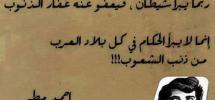 ربما يبرأ شيطان ، فيعفو عنه غفار الذنوب
إنما لا يبرأ الحكام في كل بلاد العرب
من ذنب الشعوب !!!
احمد مطر